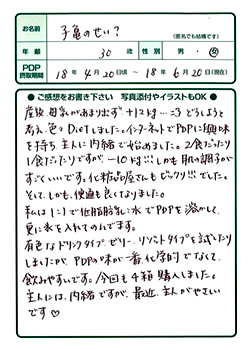 お名前
子亀のせい?
(匿名でも結構です)
年齢 30歳 性別 男・女
PDP摂取期間 18年4月20日頃 ~ 18年6月20日(現在)
●ご感想をお書き下さい 写真添付やイラストもOK●
産後、母乳があまり出ず +12kg…=3 どうしようと
考え、色々Dietしました。インターネットでPDPに興味
を持ち、主人に内緒で始めました。2食だったり
1食だったりですが、ー10kg!! しかも肌の調子が
すごくいいです。化粧品屋さんもビックリ!!でした。
そして、しかも、便通も良くなりました。
私は1:1で低脂肪乳:水でPDPを溶かして、
更に氷を入れてのんでます。
有名なドリンクタイプ、ゼリー、リゾットタイプを試したり
しましたが、PDPの味が一番、化学的でなくて、
飲みやすいです。今回も4箱購入しました。
主人には、内緒ですが、最近、主人がやさしい
です♡